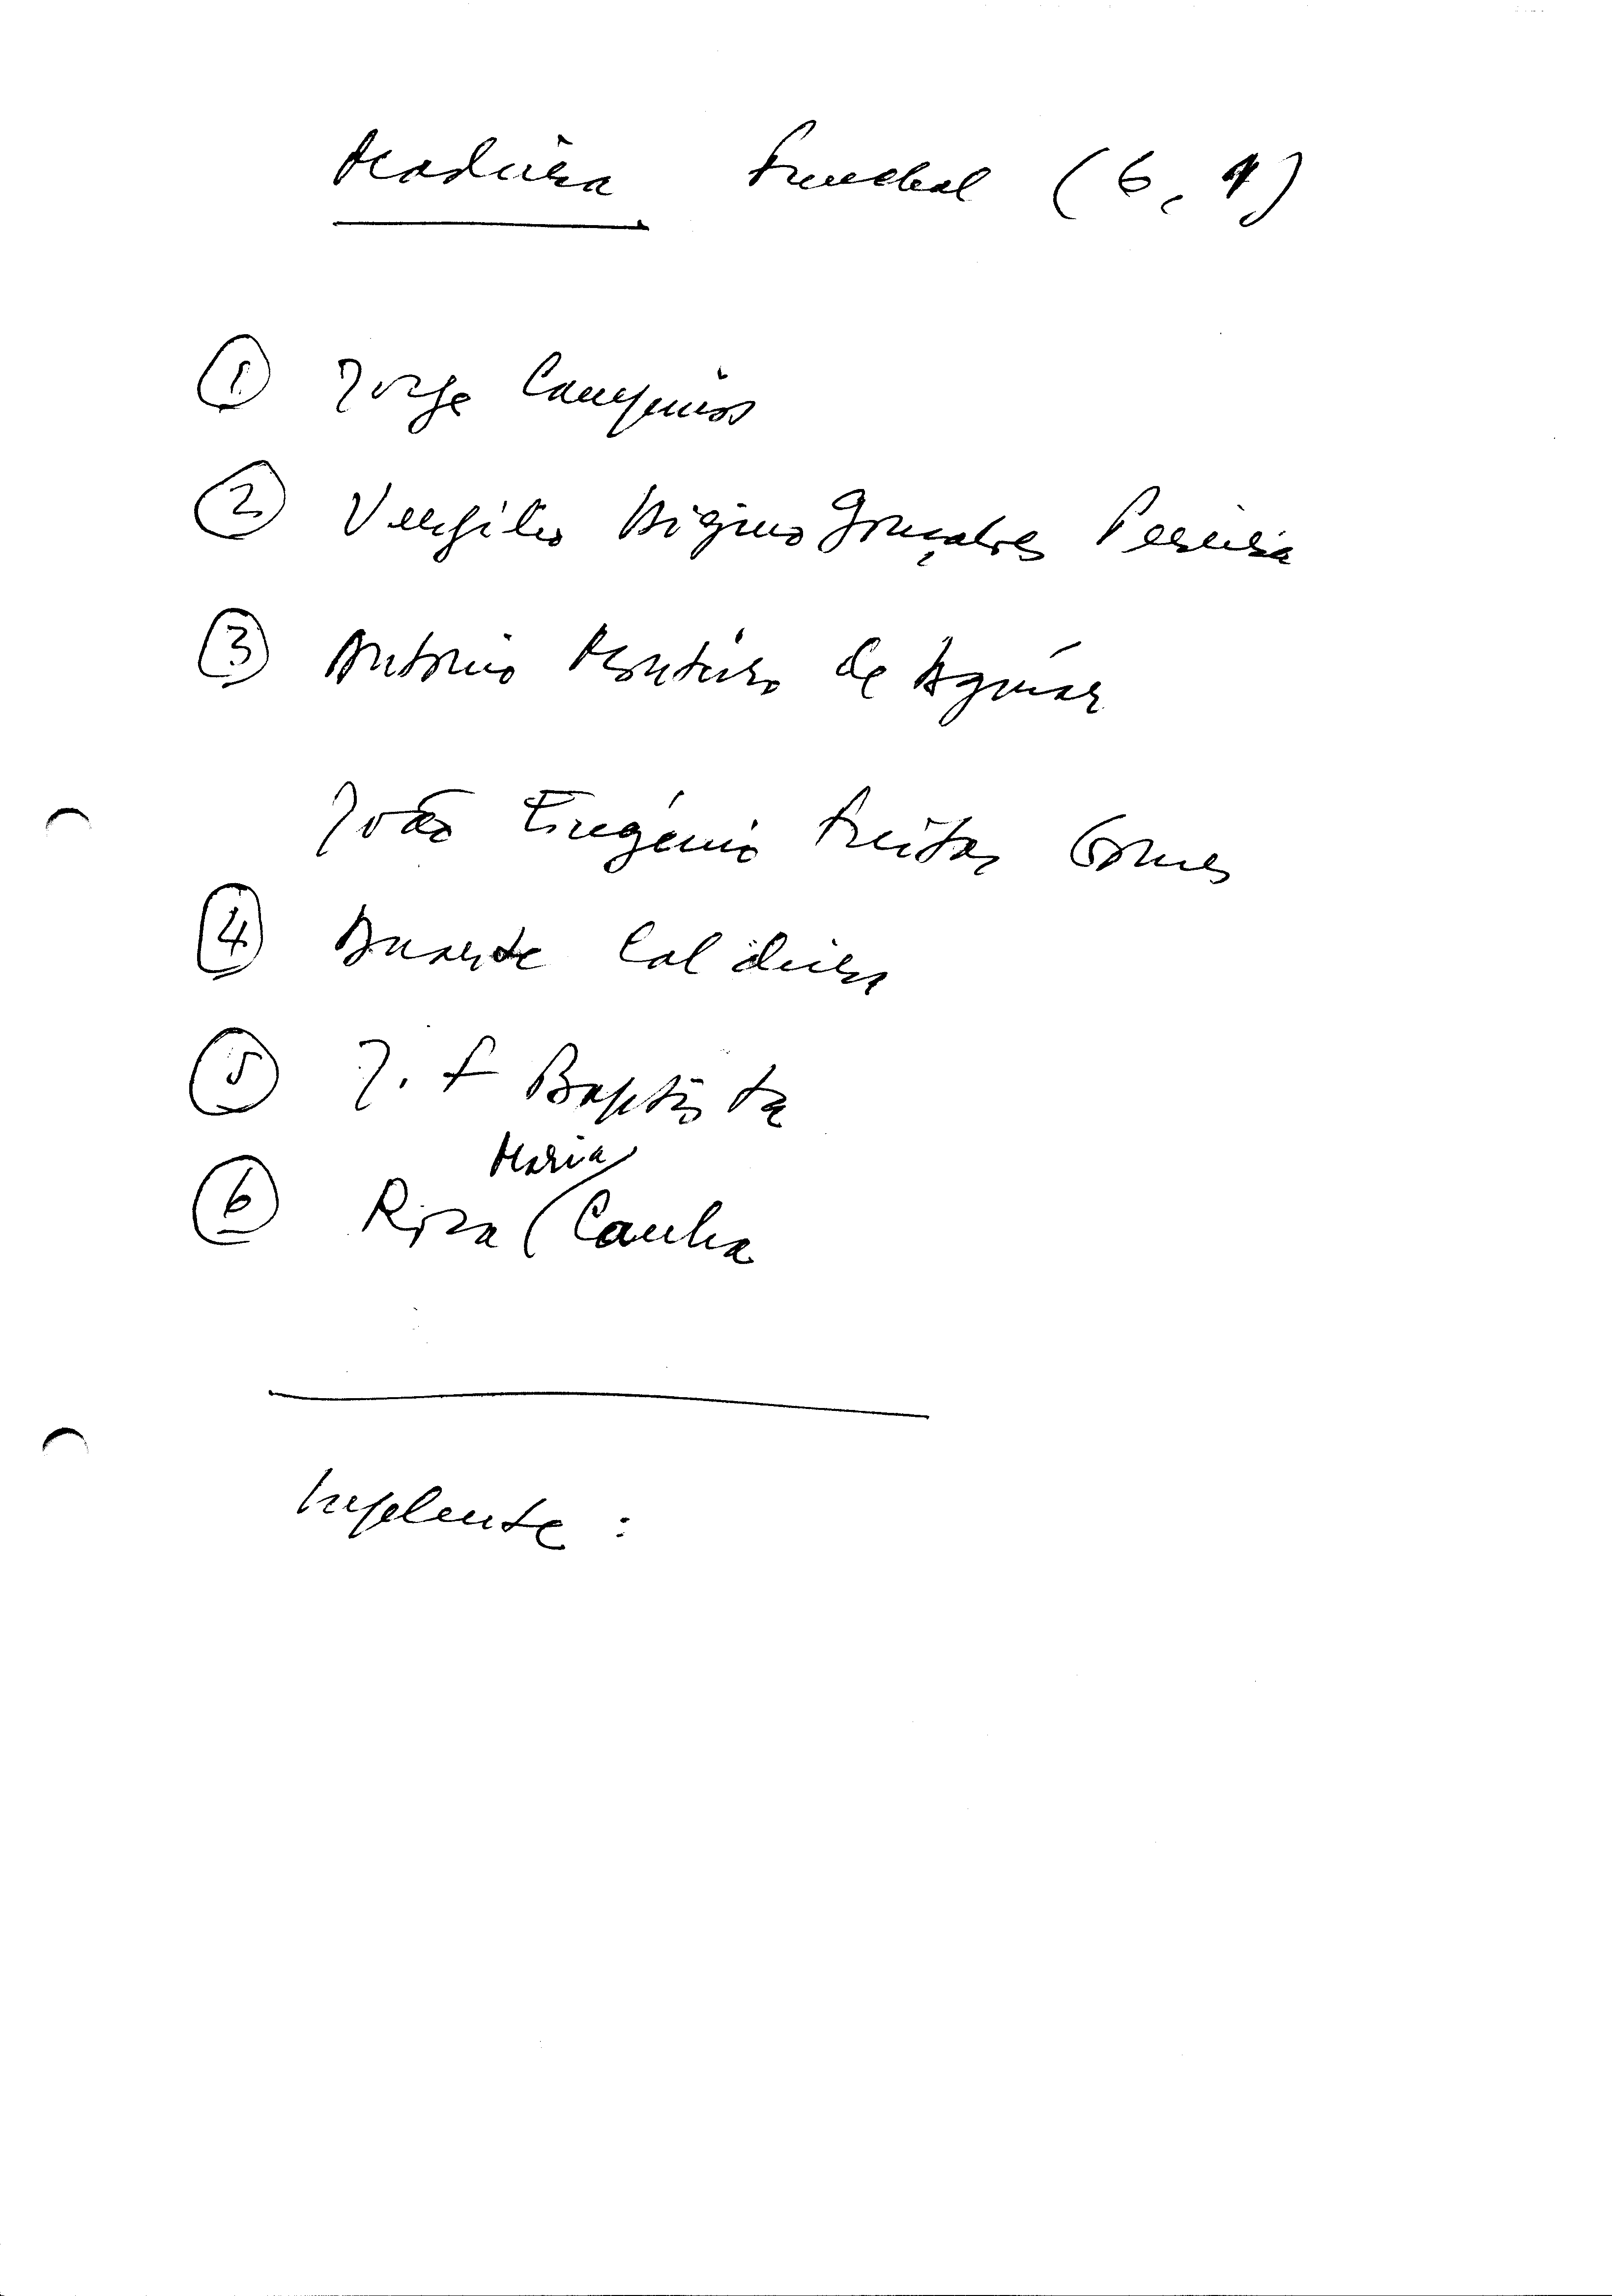 Madeira Funchal (6, 1)
① Jorge Campinos
② Vergílio Higino Gonçalves Pereira
③ António Monteiro de Aguiar
João Eugénio Freitas Gomes
④ Duarte Caldeira
⑤ J. F Baptista
Maria
⑥ Rosa Caulha
Suplente :